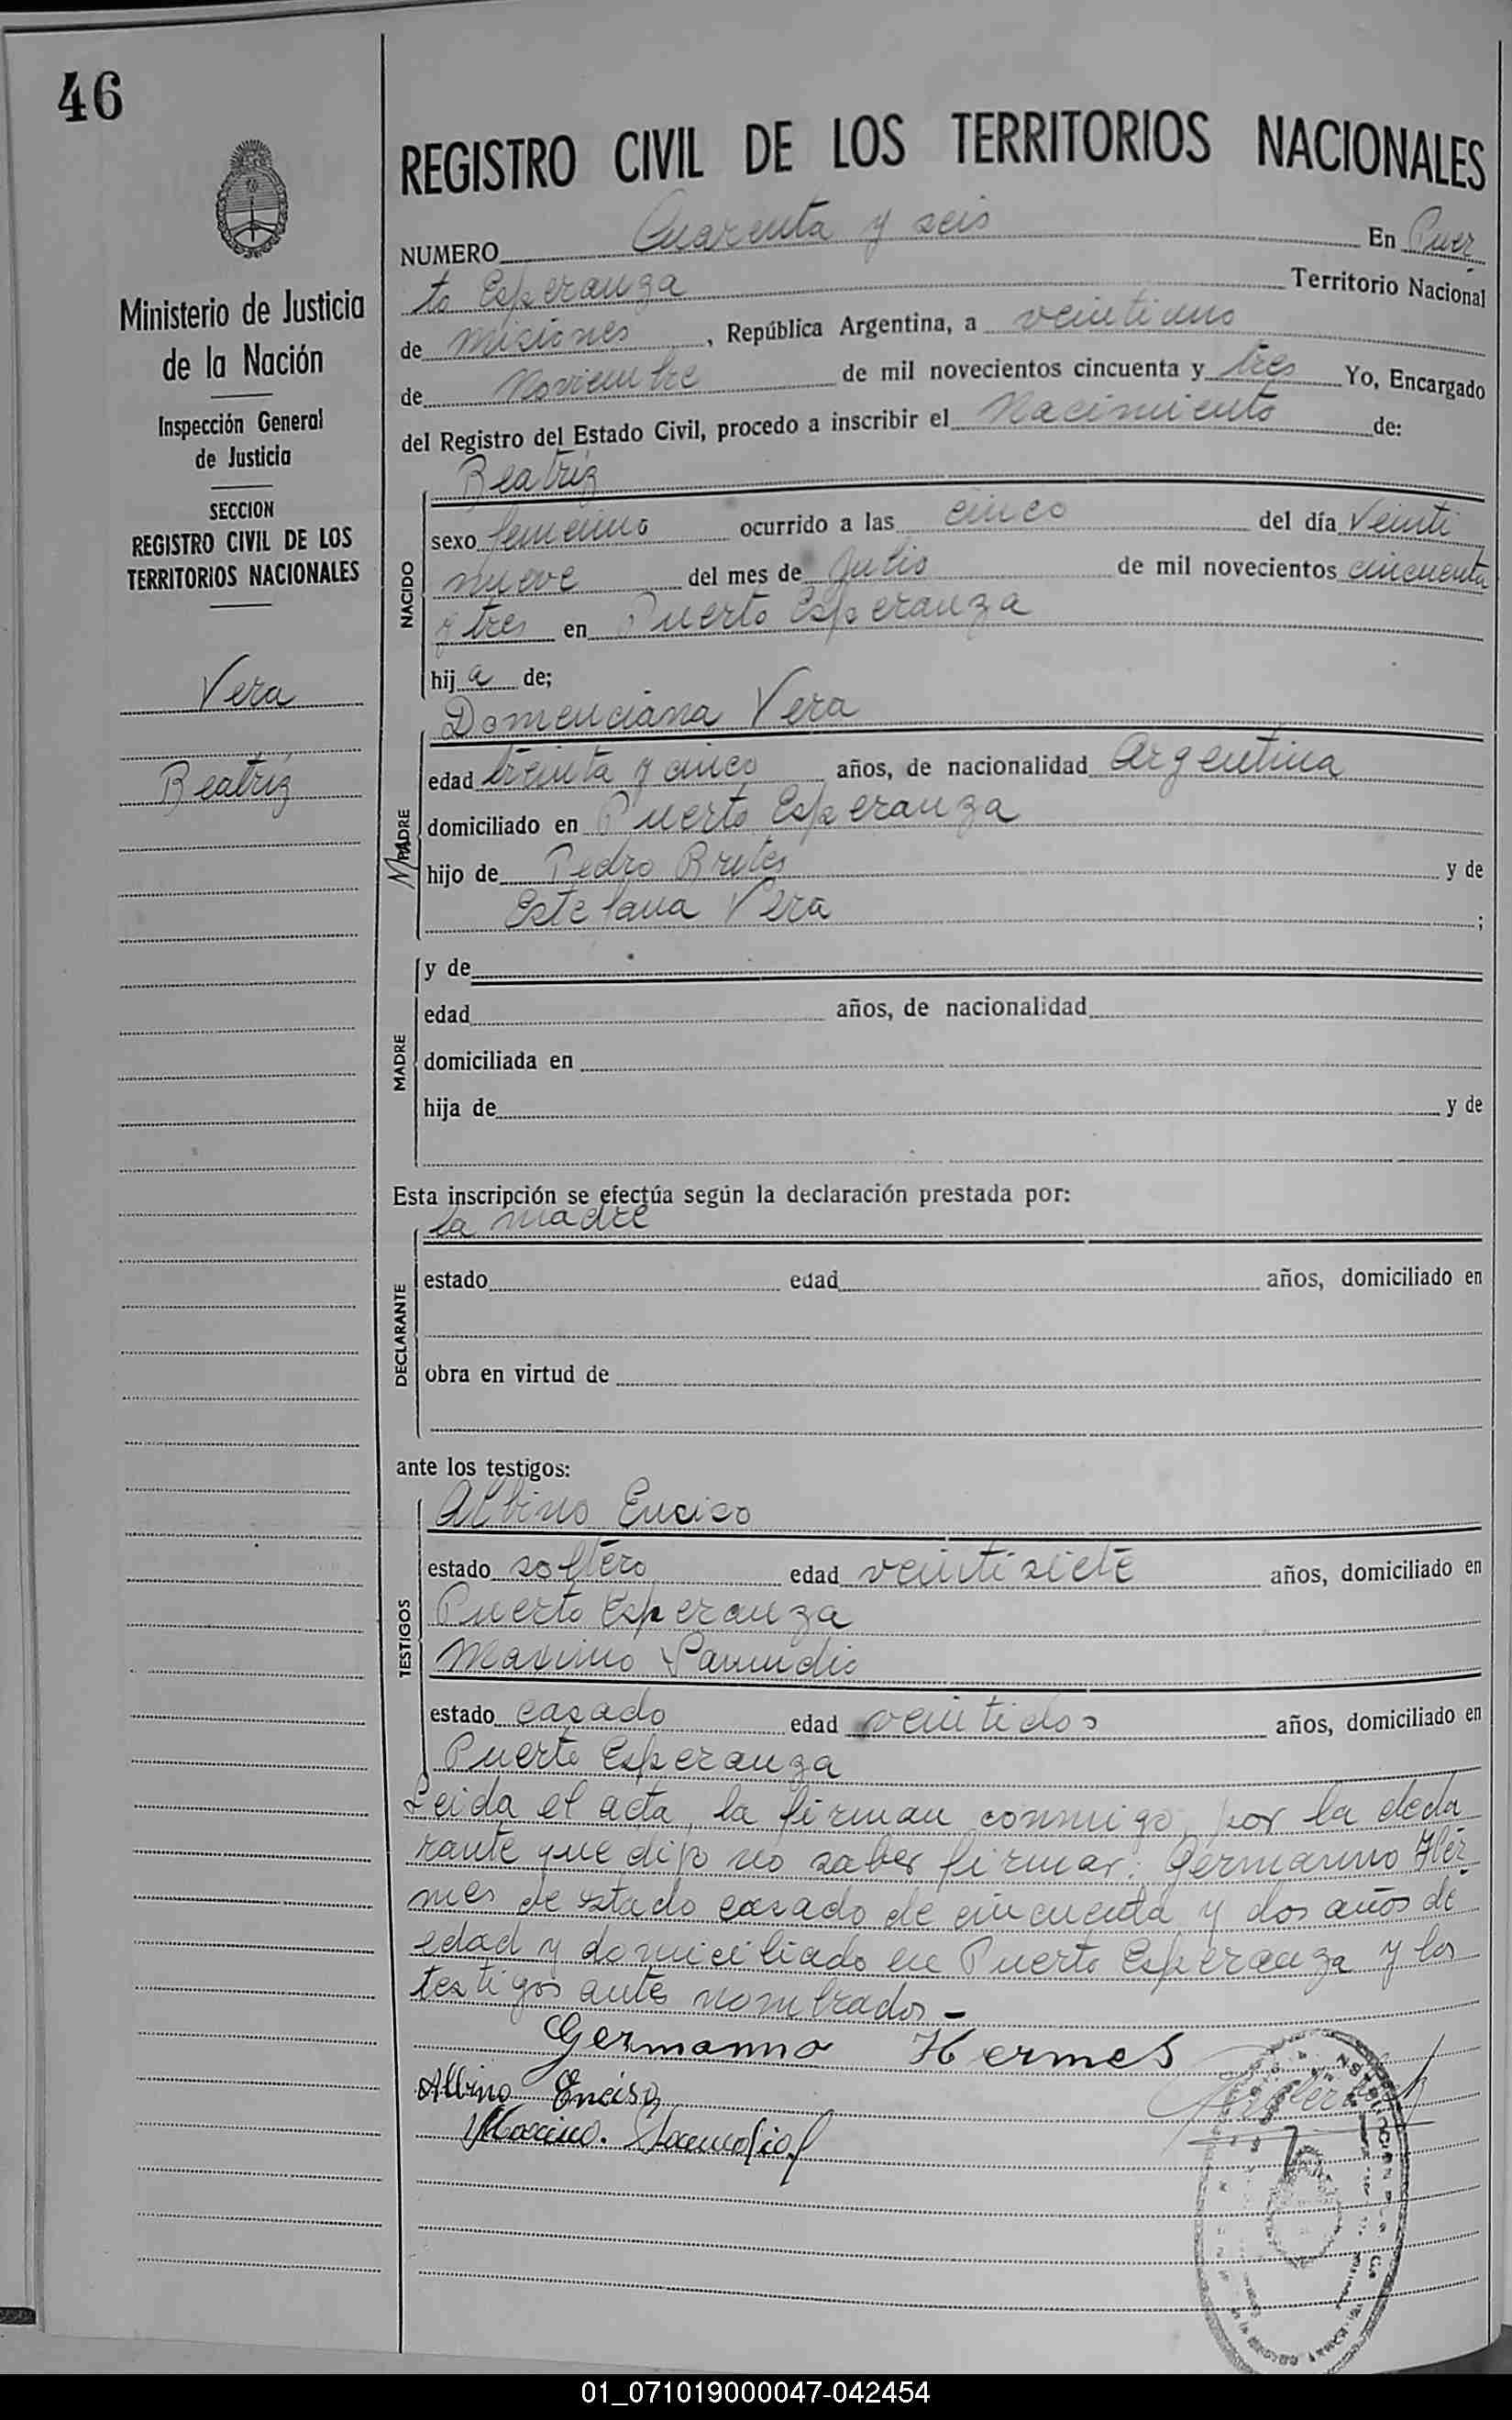 46
REGISTRO CIVIL DE LOS TERRITORIOS NACIONALES
NUMERO Cuarenta y seis En Puer
to Esperanza Territorio Nacional
de Misiones, República Argentina, a veintiuno
de Noviembre de mil novecientos cincuenta y tres Yo, Encargado
del Registro del Estado Civil, procedo a inscribir el Nacimiento de:
Ministerio de Justicia
de la Nación
Inspección General
de Justicia
SECCION
REGISTRO CIVIL DE LOS
TERRITORIOS NACIONALES
Vera
Beatriz
NACIDO
Beatriz
sexo femenino ocurrido a las cinco del día veinti
nueve del mes de Julio de mil novecientos cincuenta
y tres en Puerto Esperanza
hija de;
MADRE
Domenciana Vera
edad treinta y cinco años, de nacionalidad Argentina
domiciliado en Puerto Esperanza
hijo de Pedro Brites y de
Estefana Vera ;
MADRE
y de
edad años, de nacionalidad
domiciliada en
hija de y de
Esta inscripción se efectúa según la declaración prestada por:
DECLARANTE
la madre
estado edad años, domiciliado en
obra en virtud de
ante los testigos:
TESTIGOS
Albino Enciso
estado soltero edad veintisiete años, domiciliado en
Puerto Esperanza
Maximo
estado casado edad veintidos años, domiciliado en
Puerto Esperanza
Leida el acta, la firman conmigo, por la decla
rante que dijo no saber firmar: Germanno Her
mes de estado casado de cincuenta y dos años de
edad y domiciliado en Puerto Esperanza y los
testigos antes nombrados -
Germanno Hermes
Albino Enciso
01_071019000047-042454